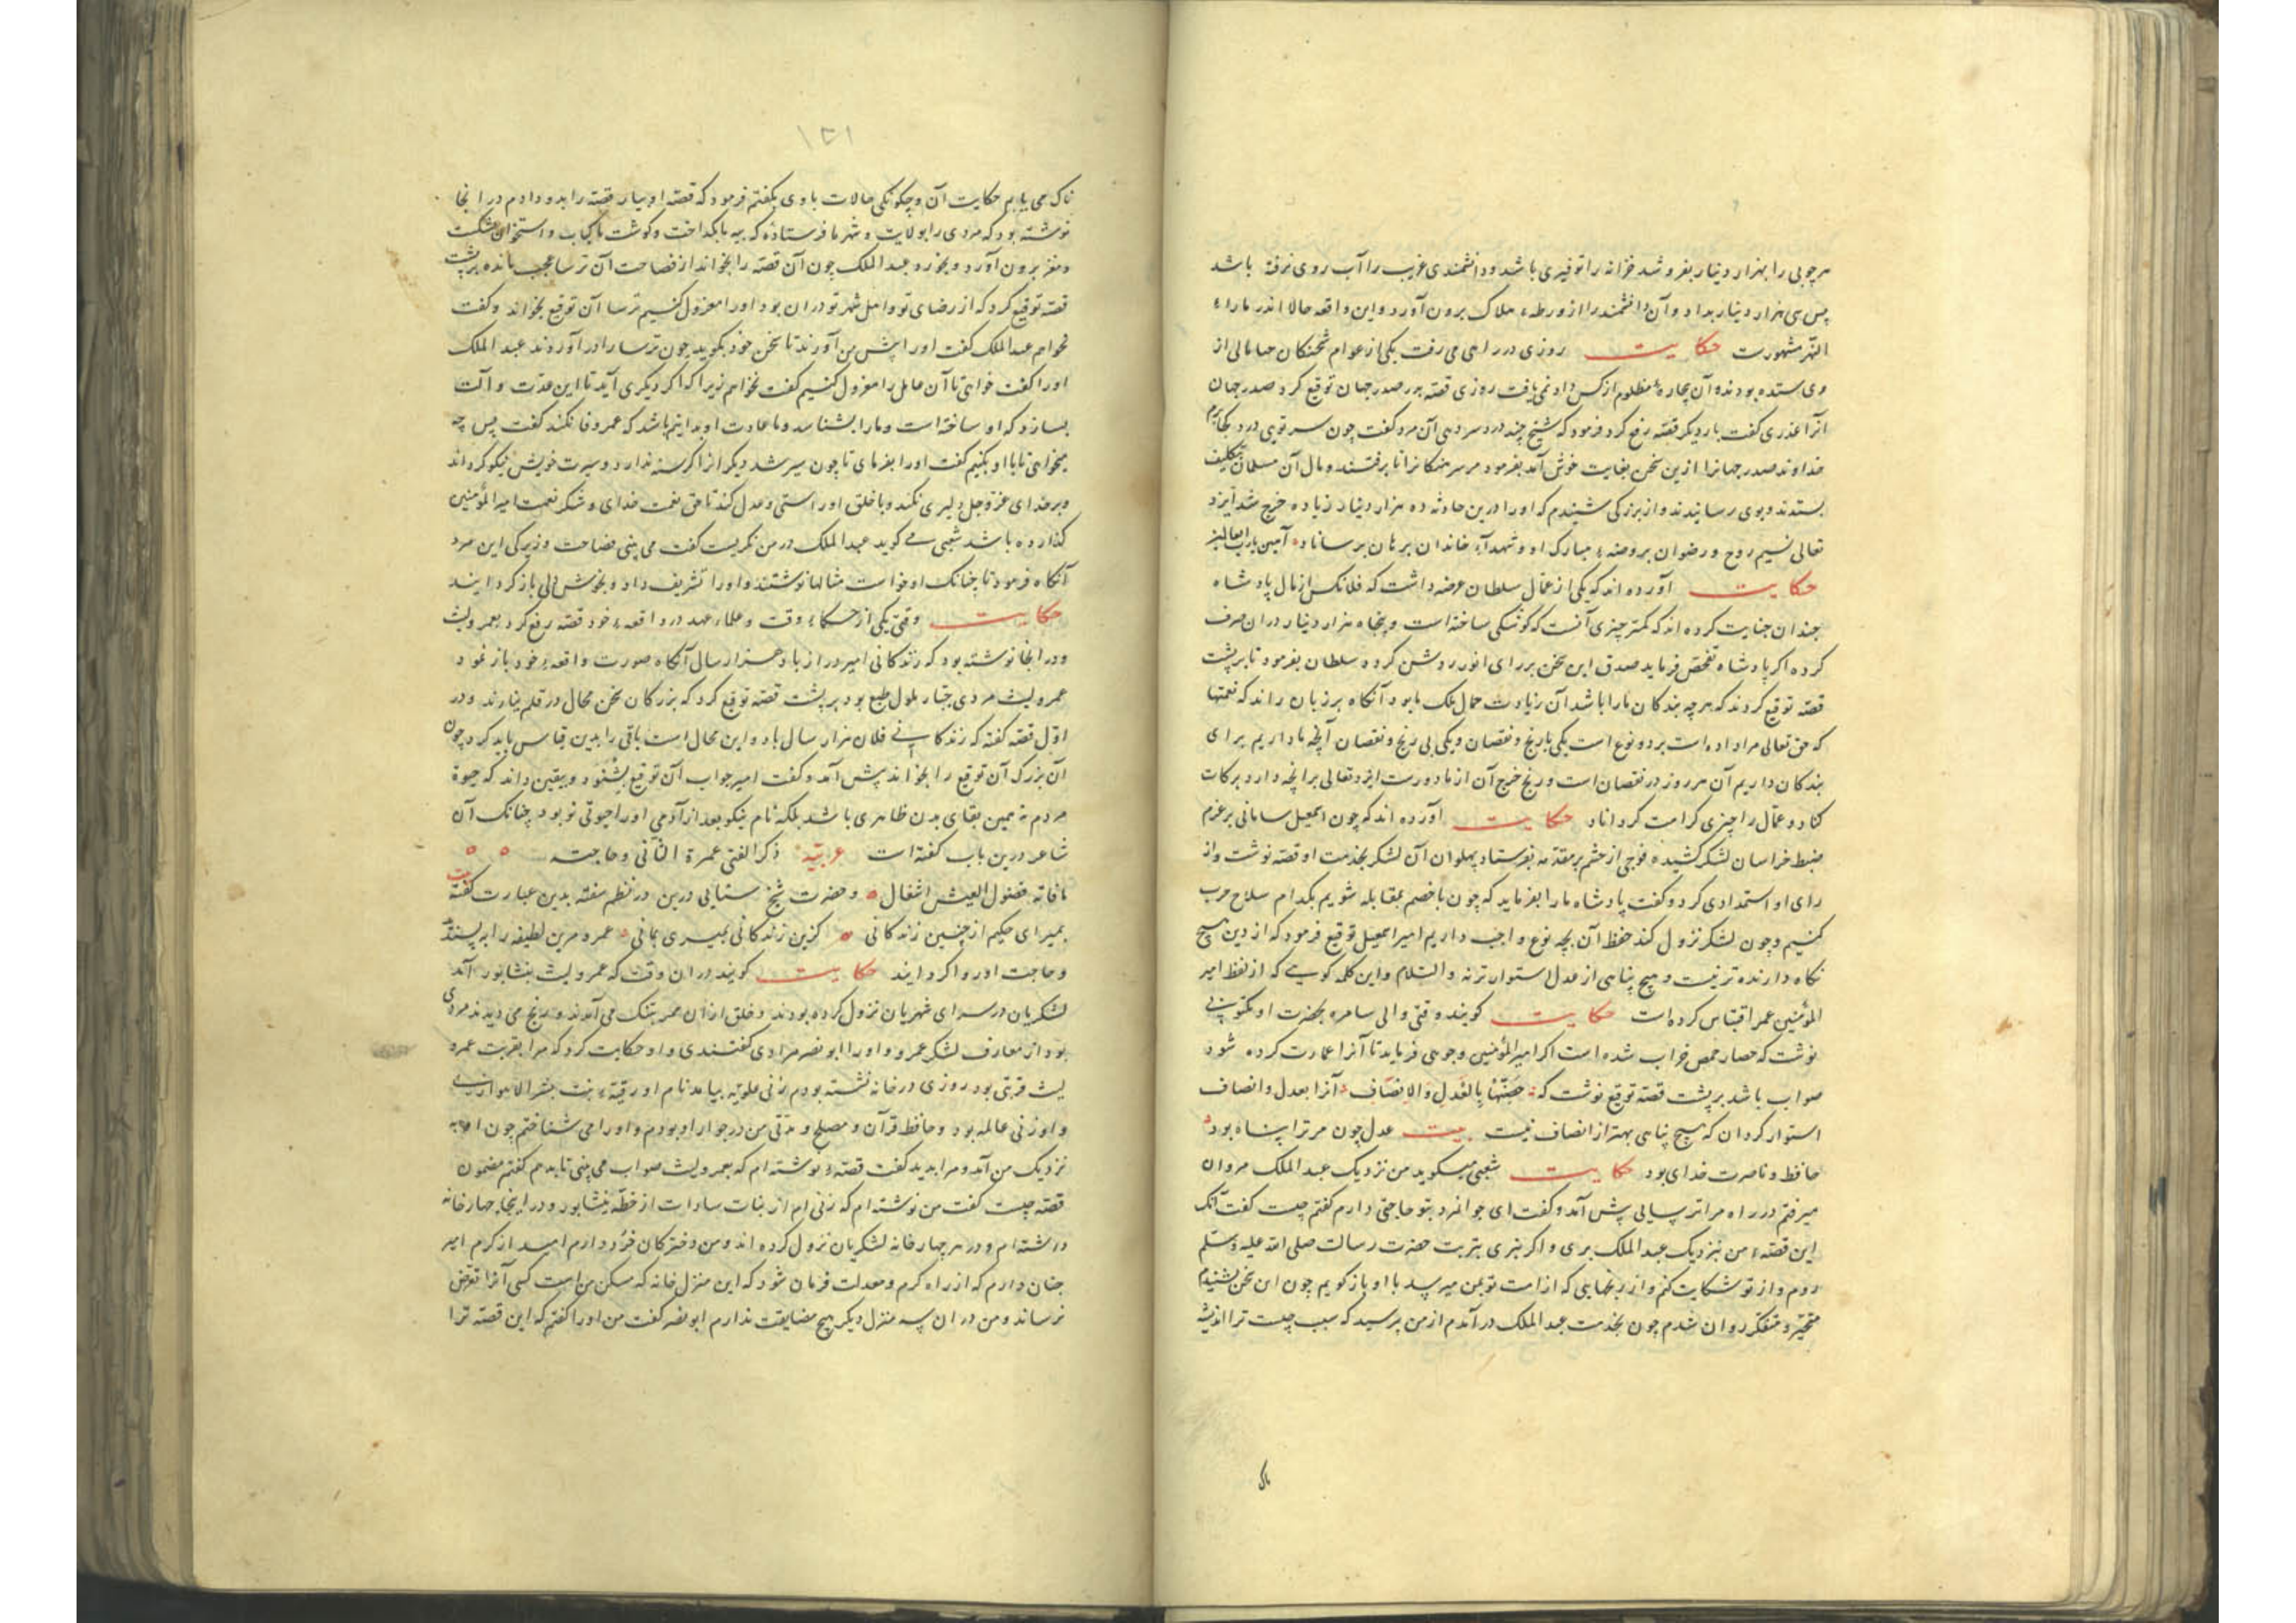 هر چوبی را بهزار دینار بفروشد خزانه را توفیری باشد و دانشمندی غریب را آب روی نرفته باشد
پس سی هزار دینار بداد و آن دانشمند را از ورطهٔ هلاک برون آورد و این واقعه حالا اندر ماوراء
النهر مشهورست حکایت روزی در راهی می رفت یکی از عوام شحنکان حمالی از
وی ستده بودند و آن بیچارهٔ مظلوم از کس داد نمی یافت روزی قصه بر صدر جهان توقیع کرد صدر جهان
آنرا عذری گفت بار دیگر قصه رفع کرد فرمود که شیخ چند درد سر دهی آن مرد گفت چون سر تویی درد کجا برم
خداوند صدر جهانرا ازین سخن بغایت خوش آمد بفرمود مر سرهنکانرا تا برفتند و مال آن مسلمان بتکلیف
بستدند و بوی رسانیدند و از بزرکی شنیدم که اورا درین حادثه ده هزار دینار زیاده خرج شد ایزد
تعالی نسیم روح و رضوان بروضهٔ مبارک او و شهداء خاندان برهان برساناد آمین یا رب العالمین
حکایت آورده اند که یکی از عمال سلطان عرضه داشت که فلانکس از مال پادشاه
چندان جنایت کرده اند که کمتر چیزی آنست که کوشکی ساخته است و پنجاه هزار دینار دران صرف
کرده اکر پادشاه تفحص فرماید صدق این سخن بر رای انور روشن کردد سلطان بفرمود تا بر پشت
قصه توقیع کردند که هرچه بندکان مارا باشد آن زیادت جمال ملک ما بود آنکاه بر زبان راند که نعمتها
که حق تعالی مرا داده است بر دو نوع است یکی با رنج و نقصان و یکی بی رنج و نقصان آنچه ما داریم برای
بندکان داریم آن هر روز در نقصان است و رنج خرج آن از ما دورست ایزد تعالی برانچه دارد برکات
کناد و عمال را چیزی کرامت کرداناد حکایت آورده اند که چون اسمعیل سامانی بر عزم
ضبط خراسان لشکر کشید فوجی از حشم بر مقدمه بفرستاد پهلوان آن لشکر بخدمت او قصه نوشت و از
رای او استمدادی کرد و گفت پادشاه مارا بفرماید که چون با خصم بمقابله شویم بکدام سلاح حرب
کنیم و چون لشکر نزول کند حفظ آن بچه نوع واجب داریم امیر اسمعیل توقیع فرمود که از دین هیچ
نکاه دارنده تر نیست و هیچ پناهی از عدل استوارتر نه والسلام و این کلمه کویی که از لفظ امیر
المؤمنین عمر اقتباس کرده است حکایت کویند وقتی والی سامره بحضرت او مکتوبی
نوشت که حصار حمص خراب شده است اکر امیر المؤمنین وجوهی فرماید تا آنرا عمارت کرده شود
صواب باشد بر پشت قصه توقیع نوشت که حَصِّنْهَا بِالعَدلِ وَالانصَاف آنرا بعدل و انصاف
استوار کردان که هیچ پناهی بهتر از انصاف نیست بیت عدل چون مر ترا پناه بود
حافظ و ناصرت خدای بود حکایت شعبی میکوید من نزدیک عبد الملک مروان
میرفتم در راه مرا ترسایی پیش آمد و گفت ای جوانمرد بتو حاجتی دارم کفتم چیست کفت آنک
این قصهٔ من بنزدیک عبد الملک بری و اکر نبری بتربت حضرت رسالت صلی الله علیه وسلم
روم و از تو شکایت کنم و از رنجهایی که از امت تو بمن میرسد با او باز کویم چون این سخن بشنیدم
متحیر و متفکر روان شدم چون بخدمت عبد الملک درآمدم از من پرسید که سبب چیست ترا اندیشه
ناک
۱۳۱
ناک می یابم حکایت آن و چکونکی حالات با وی بکفتم فرمود که قصه او بیار قصه را بدو دادم در آنجا
نوشته بود که مردی را بولایت و شهر ما فرستادهٔ که پیه ما بکداخت و کوشت ما کباب و استخوان بشکست
و مغز برون آورد و بخورد عبد الملک چون آن قصه را بخواند از فصاحت آن ترسا عجب مانده بر پشت
قصه توقیع کرد که از رضای تو و اهل شهر تو دران بود اورا معزول کنیم ترسا آن توقیع بخواند و کفت
نخواهم عبد الملک کفت اورا پیش من آورند تا سخن خود بکوید چون ترسا را در آوردند عبد الملک
اورا کفت خواهی تا آن عامل را معزول کنیم کفت نخواهم زیرا که اکر دیکری آید تا این عدت و آلت
بسازد که او ساخته است و مارا بشناسد و ما عادت او بدانیم باشد که عمر وفا نکند کفت پس چه
میخواهی تا با او بکنیم کفت اورا بفرمای تا چون سیر شد دیکر انرا کرسنه ندارد و سیرت خویش نیکو کرداند
و بر خدای عز و جل دلیری نکند و با خلق او راستی و عدل کند تا حق نعمت خدای و شکر نعمت امیر المؤمنین
کذارده باشد شعبی می کوید عبد الملک در من نکریست کفت می بینی فصاحت و زیرکی این مرد
آنکاه فرمود تا چنانک او خواست مثالها نوشتند و اورا تشریف داد و بخوش دلی باز کردانید
حکایت وقتی یکی از حکماء وقت و علماء عهد در واقعهٔ خود قصه رفع کرد بعمرو لیث
و در آنجا نوشته بود که زندکانی امیر دراز باد هزار سال آنکاه صورت واقعهٔ خود باز نمود
عمرو لیث مردی جبار ملول طبع بود بر پشت قصه توقیع کرد که بزرکان سخن محال در قلم نیارند و در
اول قصه کفته که زندکانی فلان هزار سال باد و این محال است باقی را بدین قیاس باید کرد چون
آن بزرک آن توقیع را بخواند پیش آمد و کفت امیر جواب آن توقیع بشنود و یقین داند که حیوة
مردم نه همین بقای بدن ظاهری باشد بلکه نام نیکو بعد از آدمی اورا حیوتی نو بود چنانک آن
شاعر درین باب کفته است عربیّة ذکر الفتی عمرة الثانی وحاجته
ما فاته فضول العیش اشغال و حضرت شیخ سنایی درین در نظم سفته بدین عبارت کفته بیت
بمیر ای حکیم از چنین زندکانی کزین زندکانی بمیری بمانی عمرو مرین لطیفه را بپسندید
و حاجت اورا روا کردانید حکایت کویند دران وقت که عمرو لیث بنشابور آمد
لشکریان در سرای شهریان نزول کرده بودند و خلق ازان ممر بتنک می آمدند و رنج می دیدند مردی
بود از معارف لشکر عمرو و اورا ابو نصر مرادی کفتندی و او حکایت کرد که مرا بقربت عمرو
لیث قربتی بود روزی در خانه نشسته بودم زنی علویه بیامد نام او رقیة بنت بشر الاهوازی
و او زنی عالمه بود و حافظ قرآن و مصلح و مدتی من در جوار او بودم و اورا می شناختم چون او به
نزدیک من آمد و مرا بدید کفت قصهٔ نوشته ام که بعمرو لیث صواب می بینی تا بدهم کفتم مضمون
قصه چیست کفت من نوشته ام که زنی ام از بنات سادات از خطهٔ نیشابور و در اینجا چهار خانه
داشته ام و در هر چهار خانه لشکریان نزول کرده اند و من دخترکان خرد دارم امید از کرم امیر
چنان دارم که از راه کرم و معدلت فرمان شود که این منزل خانه که مسکن من است کسی آنرا تعرض
نرساند و من در ان سه منزل دیکر هیچ مضایقت ندارم ابو نصر کفت من اورا کفتم که این قصه ترا